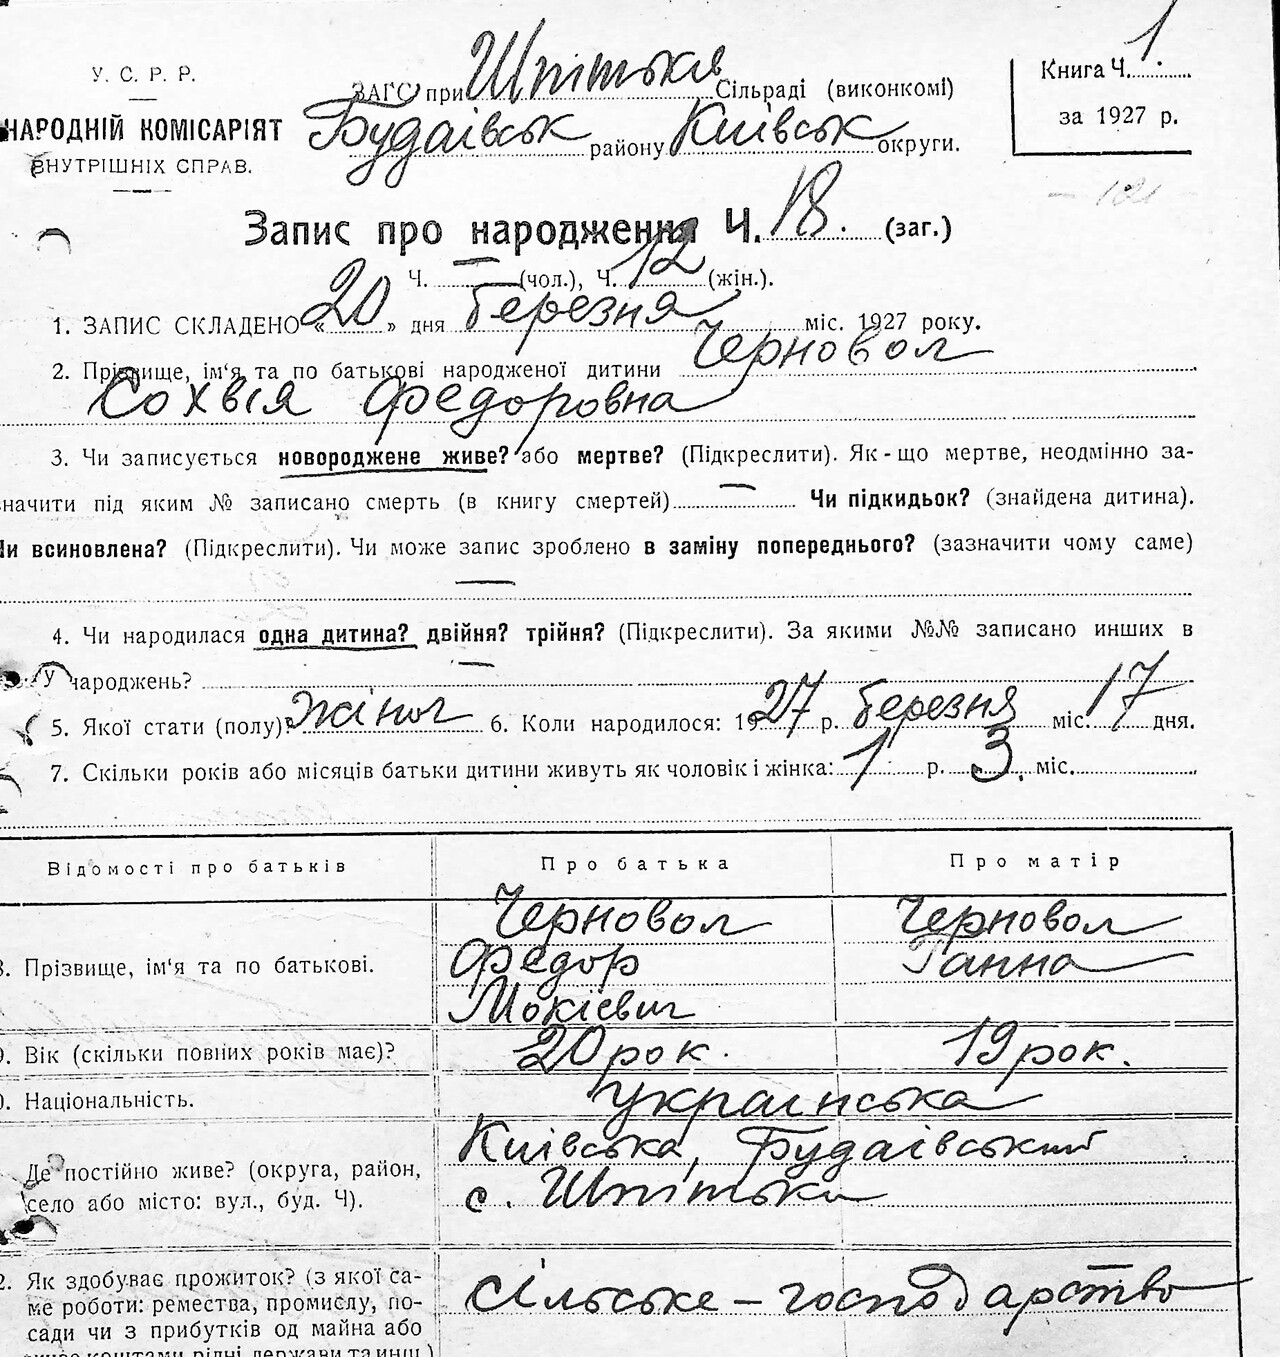 У. С. Р. Р.
НАРОДНІЙ КОМІСАРІЯТ
ВНУТРІШНІХ СПРАВ.
ЗАГС при Шпітьках Сільраді (виконкомі)
Будаївськ району Київськ округи.
Книга Ч. 1
за 1927 р.
Запис про народження Ч. 18. (заг.)
Ч. — (чол.), Ч. 12 (жін.).
1. ЗАПИС СКЛАДЕНО «20» дня березня міс. 1927 року.
2. Прізвище, ім'я та по батькові народженої дитини Черновол
Сохвія Федоровна
3. Чи записується новороджене живе? або мертве? (Підкреслити). Як-що мертве, неодмінно за-
значити під яким № записано смерть (в книгу смертей) — Чи підкидьок? (знайдена дитина).
Чи всиновлена? (Підкреслити). Чи може запис зроблено в заміну попереднього? (зазначити чому саме)
—
4. Чи народилася одна дитина? двійня? трійня? (Підкреслити). За якими №№ записано инших в
у народжень? —
5. Якої стати (полу)? жіноч 6. Коли народилося: 1927 р. березня міс. 17 дня.
7. Скільки років або місяців батьки дитини живуть як чоловік і жінка: 1 р. 3. міс.
Відомості про батьків Про батька Про матір
8. Прізвище, ім'я та по батькові. Черновол Федор Мокієвич Черновол Ганна
9. Вік (скільки повних років має)? 20 рок. 19 рок.
0. Національність. Українська
Де постійно живе? (округа, район, Київська, Будаївський
село або місто: вул., буд. Ч). с. Шпітьки
2. Як здобуває прожиток? (з якої са-
ме роботи: ремества, промислу, по- Сільське – господарство
сади чи з прибутків од майна або
коштами рідні, держави та инш.)